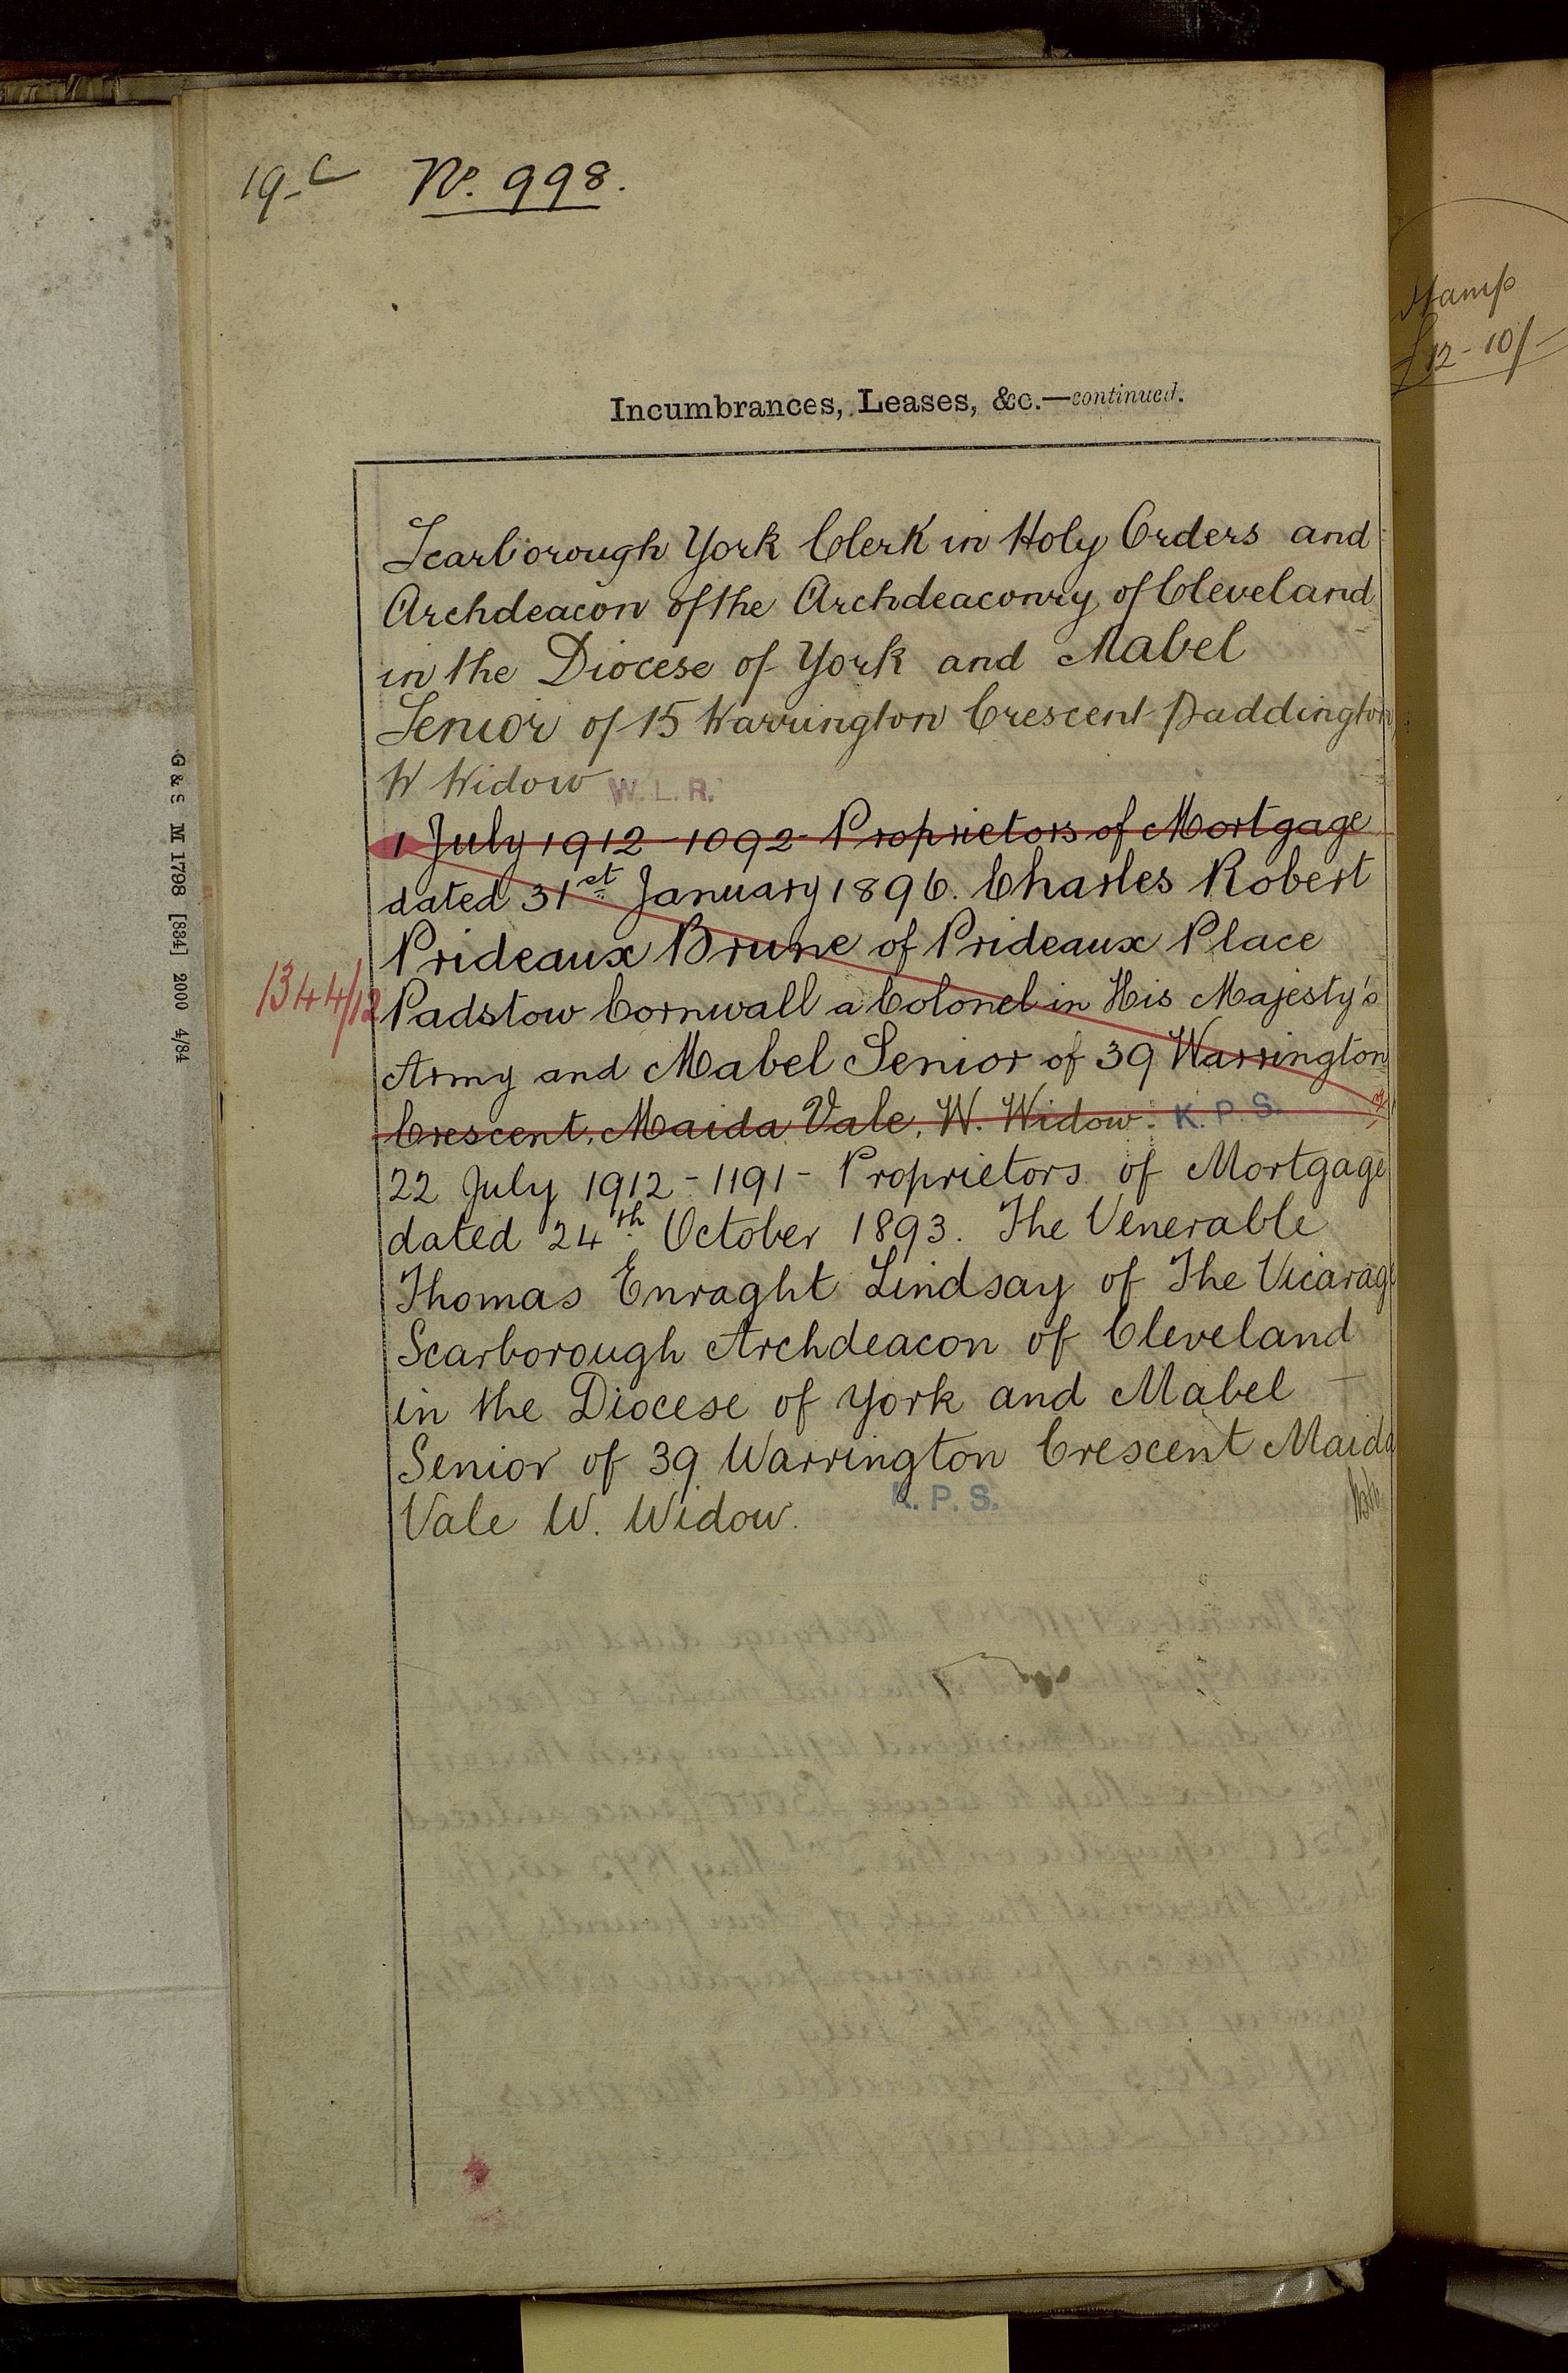 19-C No. 998.
Incumbrances, Leases, &c.—continued.
Scarborough York Clerk in Holy Orders and
Archdeacon of the Archdeaconry of Cleveland
in the Diocese of York and Mabel
Senior of 15 Warrington Crescent Paddington
W Widow W. L. R.
1 July 1912 - 1092 - Proprietors of Mortgage
dated 31st January 1896. Charles Robert
Prideaux Brune of Prideaux Place
1344/12
Padstow Cornwall a Colonel in His Majesty's
Army and Mabel Senior of 39 Warrington
Crescent, Maida Vale, W. Widow. K. P. S.
22 July 1912 - 1191 - Proprietors of Mortgage
dated 24th October 1893. The Venerable
Thomas Enraght Lindsay of The Vicarage
Scarborough Archdeacon of Cleveland
in the Diocese of York and Mabel
Senior of 39 Warrington Crescent Maida
Vale W. Widow. K. P. S.
G & S M 1798 [884] 2000 4/84
Stamp
£12-10/-